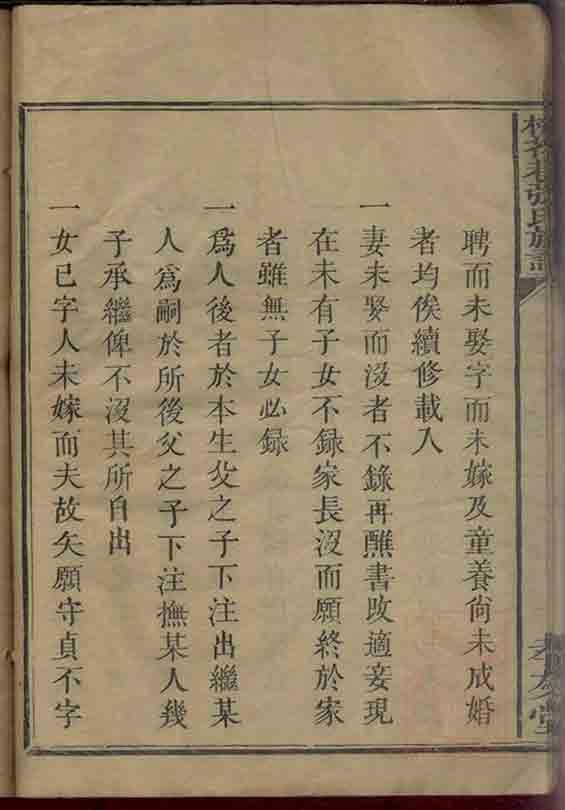 張氏族譜
聘而未娶字而未嫁及童養尙未成婚
者均俟續修載入
一妻未娶而沒者不錄再醮書改適妾現
在未有子女不録家長沒而願終於家
者雖無子女必録
一爲人後者於本生父之子下注出繼某
人爲嗣於所後父之子下注撫某人幾
子承繼俾不沒其所自出
一女已字人未嫁而夫故矢願守貞不字